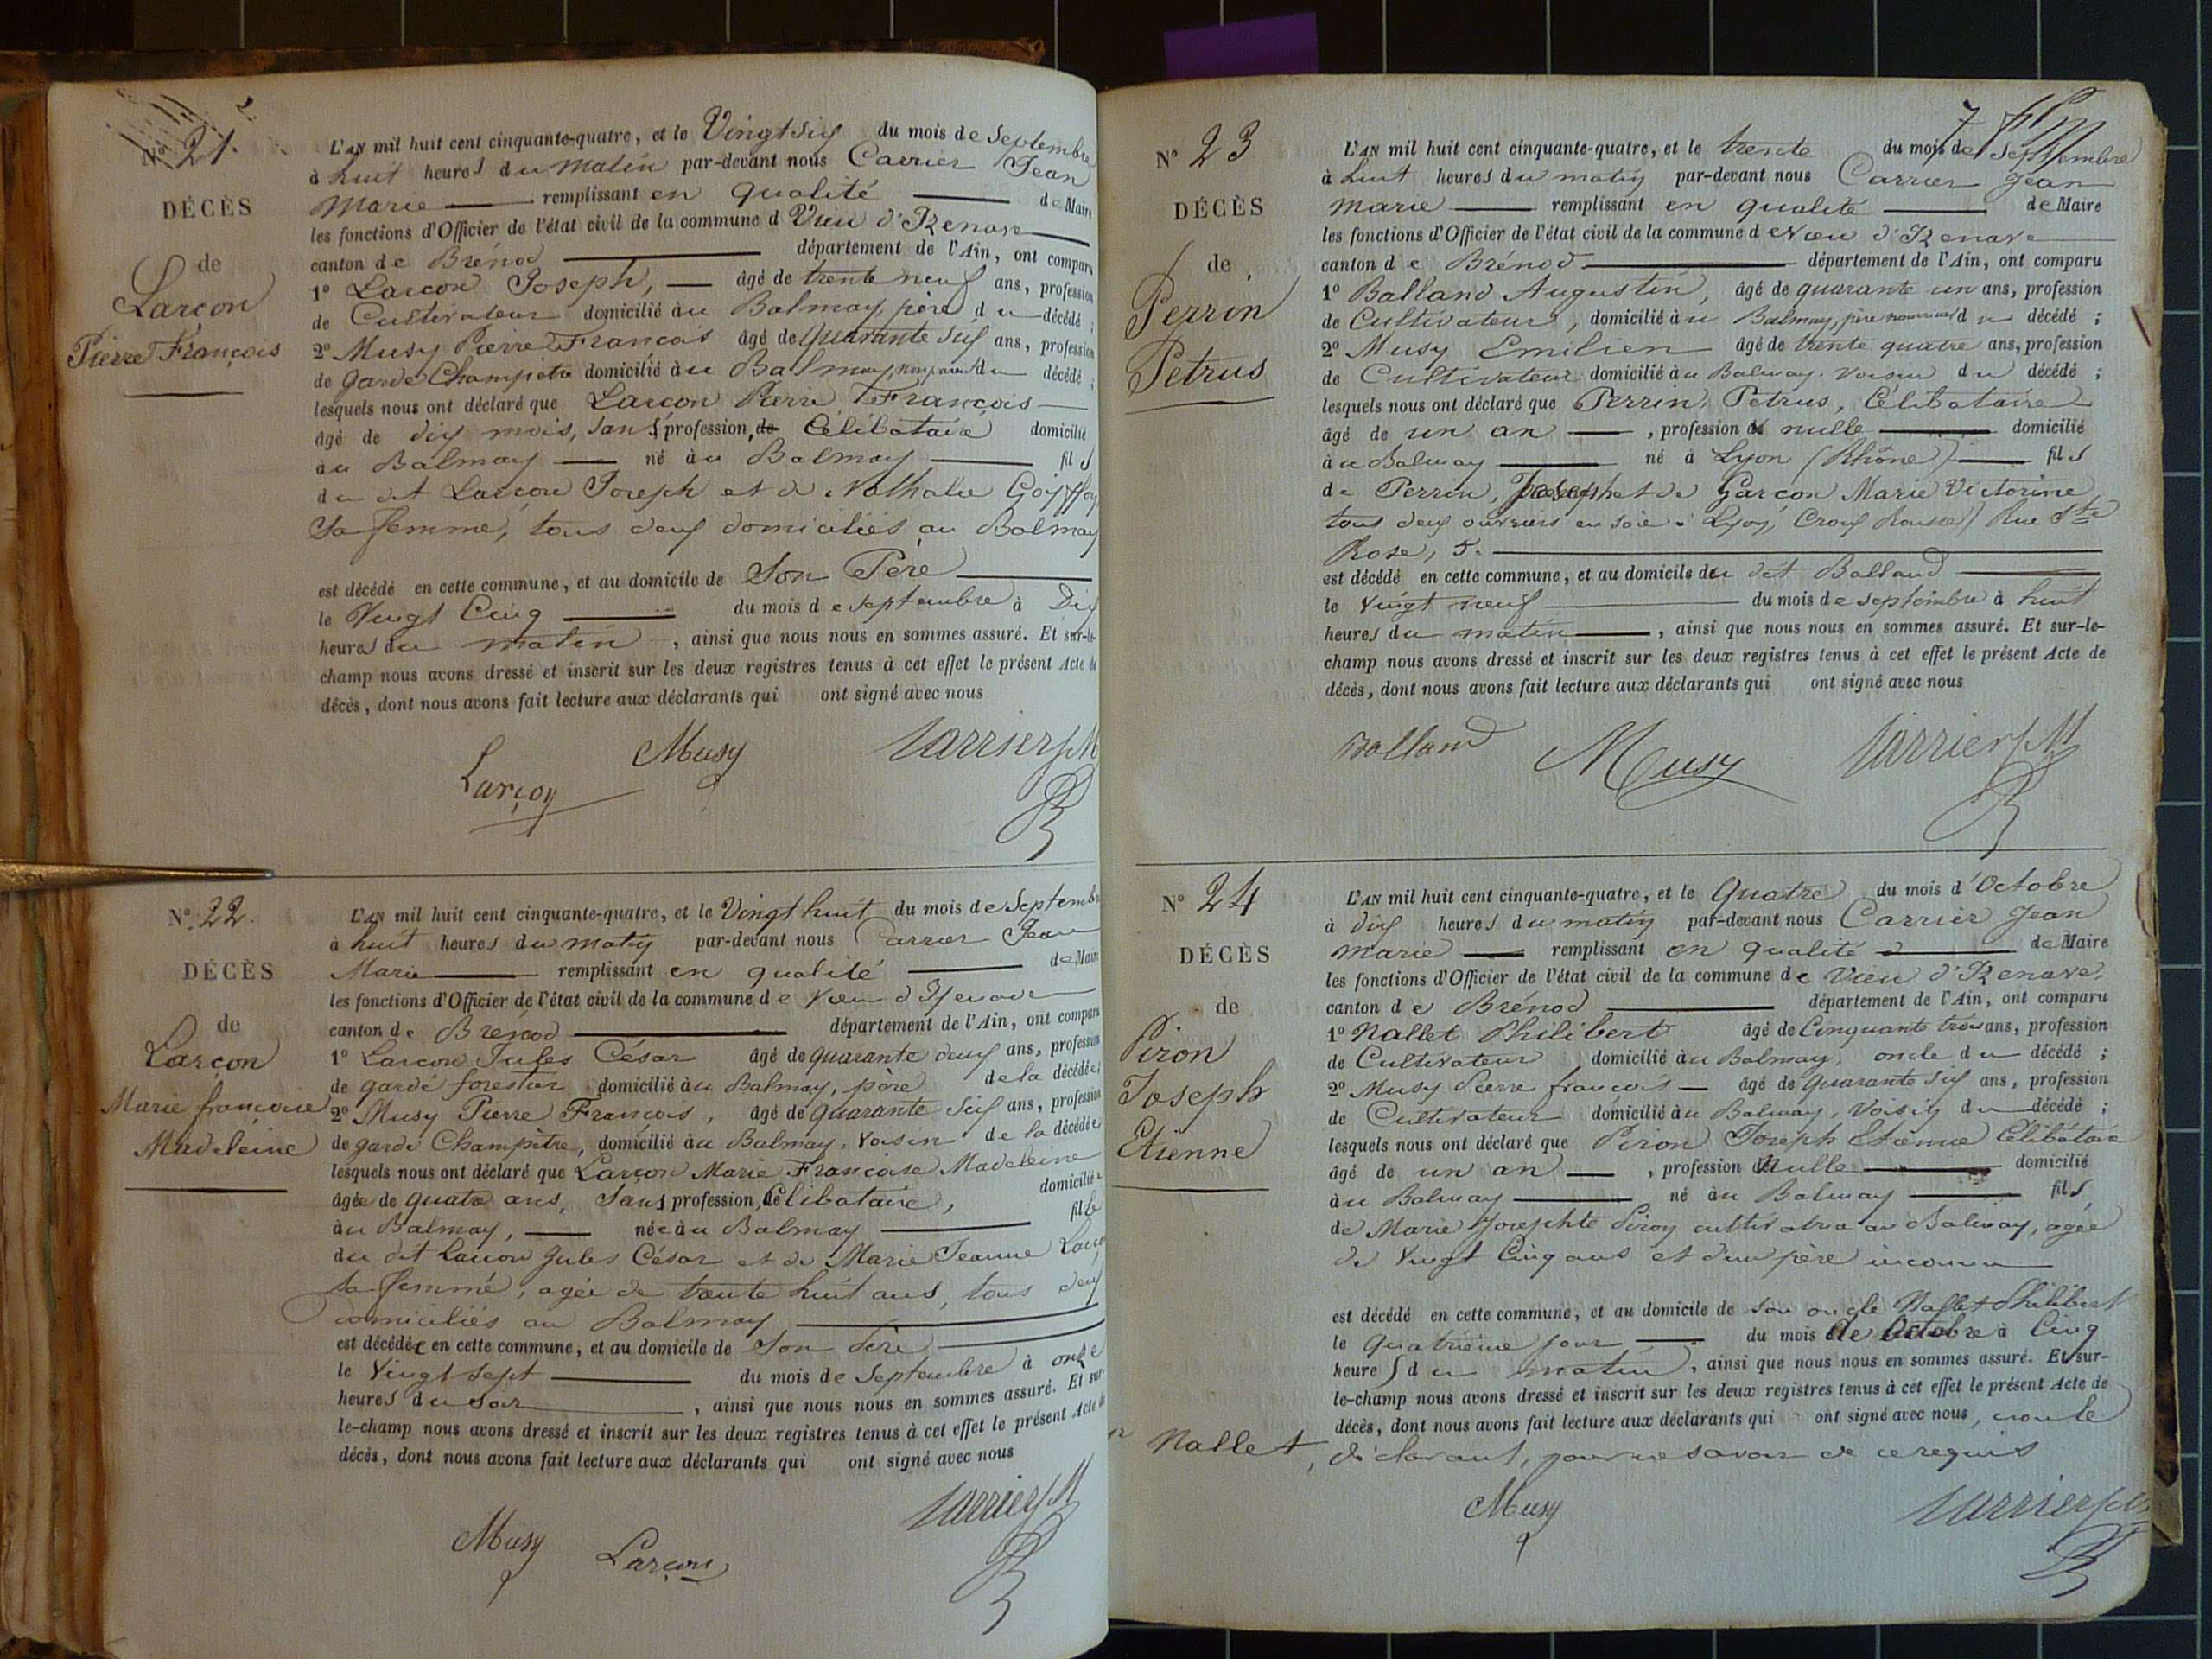 Nº 21.
DÉCÈS
de
Larçon
Pierre François
L'AN mil huit cent cinquante-quatre, et le Vingt six du mois de Septembre
à huit heures du matin par-devant nous Carrier Jean
Marie remplissant en qualité de Maire
les fonctions d'Officier de l'état civil de la commune d Vieu d'Izenave
canton de Brénod département de l'Ain, ont comparu
1º Larçon Joseph, âgé de trente neuf ans, profession
de Cultivateur domicilié au Balmay, père du décédé ;
2º Musy Pierre François âgé de quarante six ans, profession
de garde Champêtre domicilié au Balmay, non parent du décédé ;
lesquels nous ont déclaré que Larçon Pierre François
âgé de dix mois, sans profession, de Célibataire domicilié
au Balmay né au Balmay fils
du dit Larçon Joseph et de Nathalie
sa femme, tous deux domiciliés au Balmay
est décédé en cette commune, et au domicile de Son Père
le Vingt Cinq du mois de Septembre à Dix
heures du matin, ainsi que nous nous en sommes assuré. Et sur-le-
champ nous avons dressé et inscrit sur les deux registres tenus à cet effet le présent Acte de
décès, dont nous avons fait lecture aux déclarants qui ont signé avec nous
Larçon Musy Carrier JM
Nº 22.
DÉCÈS
de
Larçon
Marie françoise
Madeleine
L'AN mil huit cent cinquante-quatre, et le Vingt huit du mois de Septembre
à huit heures du matin par-devant nous Carrier Jean
Marie remplissant en qualité de Maire
les fonctions d'Officier de l'état civil de la commune de Vieu d'Izenave
canton de Brénod département de l'Ain, ont comparu
1º Larçon Jules César âgé de quarante deux ans, profession
de garde forestier domicilié au Balmay, père de la décédée
2º Musy Pierre François, âgé de quarante six ans, profession
de garde Champêtre, domicilié au Balmay, voisin de la décédée
lesquels nous ont déclaré que Larçon Marie Françoise Madeleine
âgée de quatre ans, Sans profession, Célibataire, domiciliée
au Balmay, née au Balmay fille
du dit Larçon Jules César et de Marie Jeanne
sa femme, agée de trente huit ans, tous deux
domiciliés au Balmay
est décédée en cette commune, et au domicile de Son Père
le Vingt sept du mois de Septembre à onze
heures du soir, ainsi que nous nous en sommes assuré. Et sur-
le-champ nous avons dressé et inscrit sur les deux registres tenus à cet effet le présent Acte de
décès, dont nous avons fait lecture aux déclarants qui ont signé avec nous
Musy Larçon Carrier JM
7
Nº 23
DÉCÈS
de
Perrin
Petrus
L'AN mil huit cent cinquante-quatre, et le trente du mois de Septembre
à huit heures du matin par-devant nous Carrier Jean
marie remplissant en qualité de Maire
les fonctions d'Officier de l'état civil de la commune de Vieu d'Izenave
canton de Brénod département de l'Ain, ont comparu
1º Balland Augustin, âgé de quarante un ans, profession
de Cultivateur, domicilié au Balmay, père nourricier du décédé ;
2º Musy Emilien âgé de trente quatre ans, profession
de Cultivateur domicilié au Balmay. voisin du décédé ;
lesquels nous ont déclaré que Perrin, Petrus, Célibataire
âgé de un an, profession de nulle domicilié
au Balmay né à Lyon (Rhône) fils
de Perrin, Joseph et de Garçon Marie Victorine
tous deux ouvriers en soie à Lyon, Croix Rousse) Rue Ste
Rose, 5.
est décédé en cette commune, et au domicile du dit Balland
le vingt neuf du mois de septembre à huit
heures du matin, ainsi que nous nous en sommes assuré. Et sur-le-
champ nous avons dressé et inscrit sur les deux registres tenus à cet effet le présent Acte de
décès, dont nous avons fait lecture aux déclarants qui ont signé avec nous
Balland Musy Carrier JM
Nº 24
DÉCÈS
de
Piron
Joseph
Etienne
L'AN mil huit cent cinquante-quatre, et le Quatre du mois d'Octobre
à dix heures du matin par-devant nous Carrier Jean
marie remplissant en qualité de Maire
les fonctions d'Officier de l'état civil de la commune de Vieu d'Izenave,
canton de Brénod département de l'Ain, ont comparu
1º Nallet Philibert âgé de Cinquante trois ans, profession
de Cultivateur domicilié au Balmay, oncle du décédé ;
2º Musy Pierre françois âgé de Quarante six ans, profession
de Cultivateur domicilié au Balmay, Voisin du décédé ;
lesquels nous ont déclaré que Piron Joseph Etienne Célibataire
âgé de un an, profession Nulle domicilié
au Balmay né au Balmay fils
de Marie Josephte Piron cultivatrice au Balmay, agée
de Vingt Cinq ans et d'un père inconnu
est décédé en cette commune, et au domicile de son oncle Nallet Philibert
le Quatrième jour du mois de Octobre à Cinq
heures du matin, ainsi que nous nous en sommes assuré. Et sur-
le-champ nous avons dressé et inscrit sur les deux registres tenus à cet effet le présent Acte de
décès, dont nous avons fait lecture aux déclarants qui ont signé avec nous, non le
Nallet, déclarant, pour ne savoir de ce requis
Musy Carrier JM